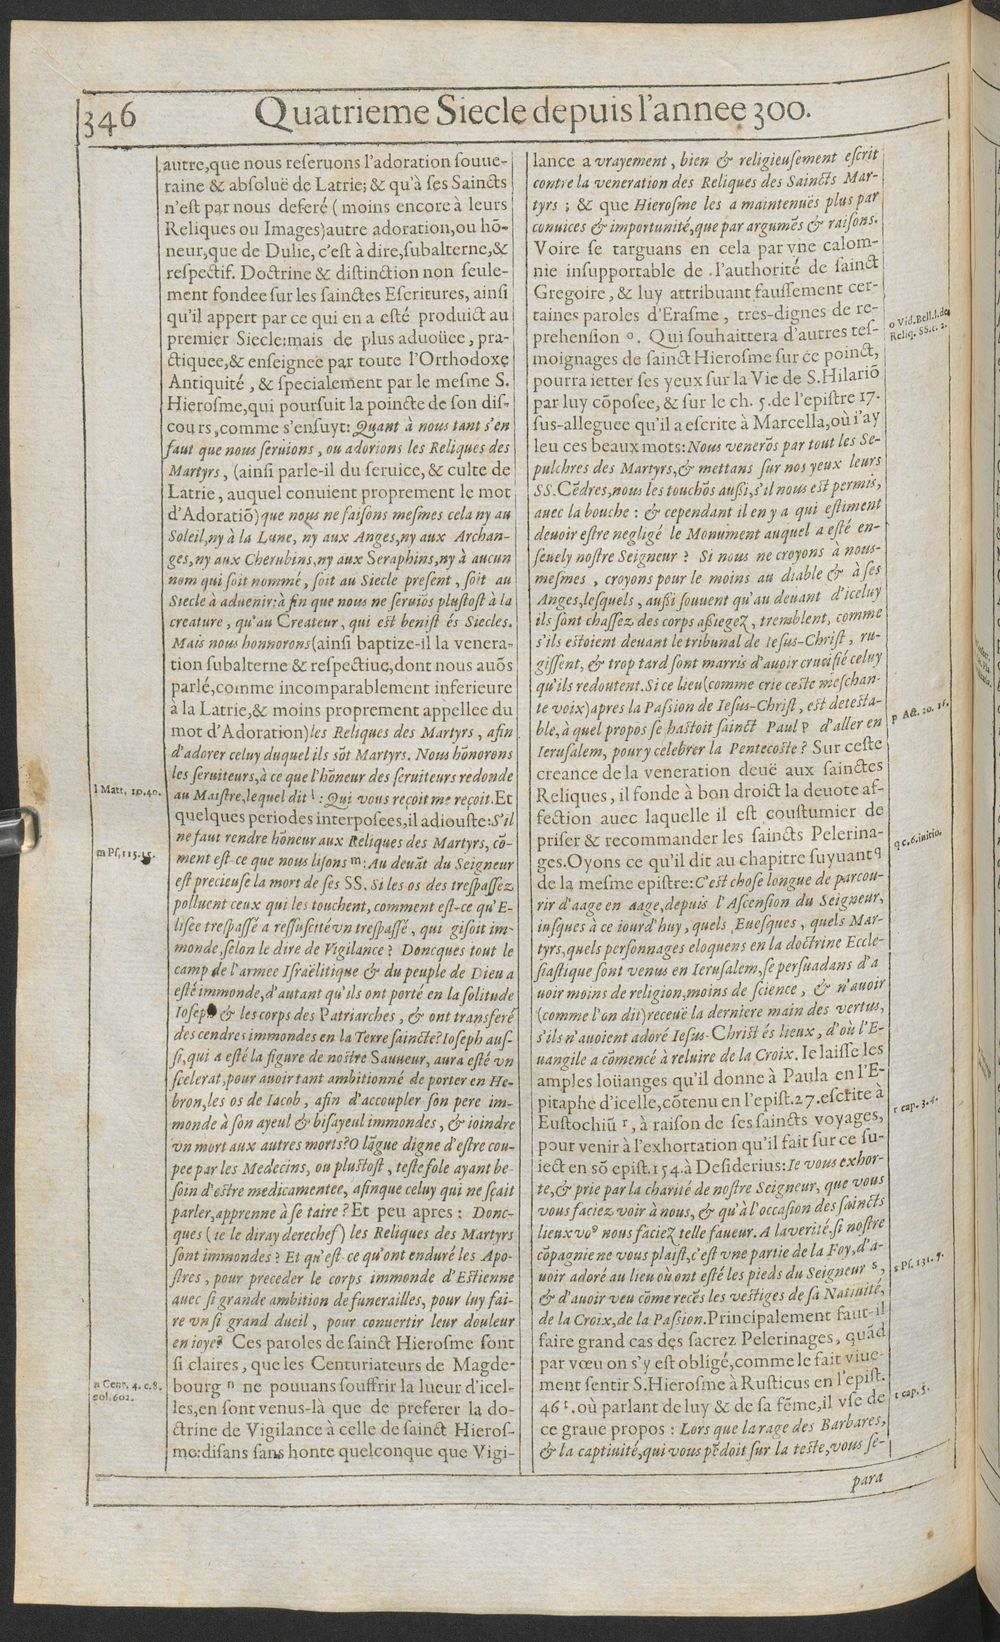 346
Quatrieme Siecle depuis l'annee 300.
autre, que nous reseruons l'adoration souue-
raine & absoluë de Latrie; & qu'à ses Saincts
n'est par nous deferé (moins encore à leurs
Reliques ou Images) autre adoration, ou hõ-
neur, que de Dulie, c'est à dire, subalterne, &
respectif. Doctrine & distinction non seule-
ment fondee sur les sainctes Escritures, ainsi
qu'il appert par ce qui en a esté produict au
premier Siecle: mais de plus aduoüee, pra-
ctiquee, & enseignee par toute l'Orthodoxe
Antiquité, & specialement par le mesme S.
Hierosme, qui poursuit la poincte de son dis-
cours, comme s'ensuyt: Quant à nous tant s'en
faut que nous seruions, ou adorions les Reliques des
Martyrs, (ainsi parle-il du seruice, & culte de
Latrie, auquel conuient proprement le mot
d'Adoratiõ) que nous ne faisons mesmes cela ny au
Soleil, ny à la Lune, ny aux Anges, ny aux Archan-
ges, ny aux Cherubins, ny aux Seraphins, ny à aucun
nom qui soit nommé, soit au Siecle present, soit au
Siecle à aduenir: à fin que nous ne seruiõs plustost à la
creature, qu'au Createur, qui est benist és Siecles.
Mais nous honnorons (ainsi baptize-il la venera-
tion subalterne & respectiue, dont nous auõs
parlé, comme incomparablement inferieure
à la Latrie, & moins proprement appellee du
mot d'Adoration) les Reliques des Martyrs, afin
d'adorer celuy duquel ils sõt Martyrs. Nous hõnorons
les seruiteurs, à ce que l'hõneur des seruiteurs redonde
au Maistre, lequel dit l: Qui vous reçoit me reçoit. Et
quelques periodes interposees, il adiouste: S'il
ne faut rendre hõneur aux Reliques des Martyrs, cõ-
ment est-ce que nous lisons m: Au deuãt du Seigneur
est precieuse la mort de ses SS. Si les os des trespassez
polluent ceux qui les touchent, comment est-ce qu'E-
lisee trespassé a ressuscité vn trespassé, qui gisoit im-
monde, selon le dire de Vigilance? Doncques tout le
camp de l'armee Israëlitique & du peuple de Dieu a
esté immonde, d'autant qu'ils ont porté en la solitude
Ioseph & les corps des Patriarches, & ont transferé
des cendres immondes en la Terre saincte? Ioseph aus-
si, qui a esté la figure de nostre Sauueur, aura esté vn
scelerat, pour auoir tant ambitionné de porter en He-
bron, les os de Iacob, afin d'accoupler son pere im-
monde à son ayeul & bisayeul immondes, & ioindre
vn mort aux autres morts? O lãgue digne d'estre cou-
pee par les Medecins, ou plustost, teste fole ayant be-
soin d'estre medicamentee, afinque celuy qui ne sçait
parler, apprenne à se taire? Et peu apres: Donc-
ques (ie le diray derechef) les Reliques des Martyrs
sont immondes? Et qu'est-ce qu'ont enduré les Apo-
stres, pour preceder le corps immonde d'Estienne
auec si grande ambition de funerailles, pour luy fai-
re vn si grand dueil, pour conuertir leur douleur
en ioye? Ces paroles de sainct Hierosme sont
si claires, que les Centuriateurs de Magde-
bourg n ne pouuans souffrir la lueur d'icel-
les, en sont venus-là que de preferer la do-
ctrine de Vigilance à celle de sainct Hieros-
me: disans sans honte quelconque que Vigi-
l Matt. 10.40.
m Ps. 115.15.
n Cent. 4. c. 8.
col. 602.
lance a vrayement, bien & religieusement escrit
contre la veneration des Reliques des Saincts Mar-
tyrs; & que Hierosme les a maintenuës plus par
conuices & importunité, que par argumẽs & raisons.
Voire se targuans en cela par vne calom-
nie insupportable de l'authorité de sainct
Gregoire, & luy attribuant faussement cer-
taines paroles d'Erasme, tres-dignes de re-
prehension o. Qui souhaittera d'autres tes-
moignages de sainct Hierosme sur ce poinct,
pourra ietter ses yeux sur la Vie de S. Hilariõ
par luy cõposee, & sur le ch. 5. de l'epistre 17.
sus-alleguee qu'il a escrite à Marcella, où i'ay
leu ces beaux mots: Nous venerõs par tout les Se-
pulchres des Martyrs, & mettans sur nos yeux leurs
SS. Cẽdres, nous les touchõs aussi, s'il nous est permis,
auec la bouche: & cependant il en y a qui estiment
deuoir estre negligé le Monument auquel a esté en-
seuely nostre Seigneur? Si nous ne croyons à nous-
mesmes, croyons pour le moins au diable & à ses
Anges, lesquels, aussi souuent qu'au deuant d'iceluy
ils sont chassez des corps assiegez, tremblent, comme
s'ils estoient deuant le tribunal de Iesus-Christ, ru-
gissent, & trop tard sont marris d'auoir crucifié celuy
qu'ils redoutent. Si ce lieu (comme crie ceste meschan-
te voix) apres la Passion de Iesus-Christ, est detesta-
ble, à quel propos se hastoit sainct Paul p d'aller en
Ierusalem, pour y celebrer la Pentecoste? Sur ceste
creance de la veneration deuë aux sainctes
Reliques, il fonde à bon droict la deuote af-
fection auec laquelle il est coustumier de
priser & recommander les saincts Pelerina-
ges. Oyons ce qu'il dit au chapitre suyuant q
de la mesme epistre: C'est chose longue de parcou-
rir d'aage en aage, depuis l'Ascension du Seigneur,
iusques à ce iourd'huy, quels Euesques, quels Mar-
tyrs, quels personnages eloquens en la doctrine Eccle-
siastique sont venus en Ierusalem, se persuadans d'a
uoir moins de religion, moins de science, & n'auoir
(comme l'on dit) receuë la derniere main des vertus,
s'ils n'auoient adoré Iesus-Christ és lieux, d'où l'E-
uangile a cõmencé à reluire de la Croix. Ie laisse les
amples loüanges qu'il donne à Paula en l'E-
pitaphe d'icelle, cõtenu en l'epist. 27. escrite à
Eustochiũ r, à raison de ses saincts voyages,
pour venir à l'exhortation qu'il fait sur ce su-
iect en sõ epist. 154. à Desiderius: Ie vous exhor-
te, & prie par la charité de nostre Seigneur, que vous
vous faciez voir à nous, & qu'à l'occasion des saincts
lieux vo9 nous faciez telle faueur. A la verité, si nostre
cõpagnie ne vous plaist, c'est vne partie de la Foy, d'a-
uoir adoré au lieu où ont esté les pieds du Seigneur s,
& d'auoir veu cõme recẽs les vestiges de sa Natiuité,
de la Croix, de la Passion. Principalement faut-il
faire grand cas des sacrez Pelerinages, quãd
par vœu on s'y est obligé, comme le fait viue-
ment sentir S. Hierosme à Rusticus en l'epist.
46 t. où parlant de luy & de sa fẽme, il vse de
ce graue propos: Lors que la rage des Barbares,
& la captiuité, qui vous pẽdoit sur la teste, vous se-
para
o Vid. Bell. l. de
Reliq. SS. c. 2.
p Act. 20. 16.
q c. 6. initio.
r cap. 3. 4.
s Ps. 131. 7.
t cap. 5.